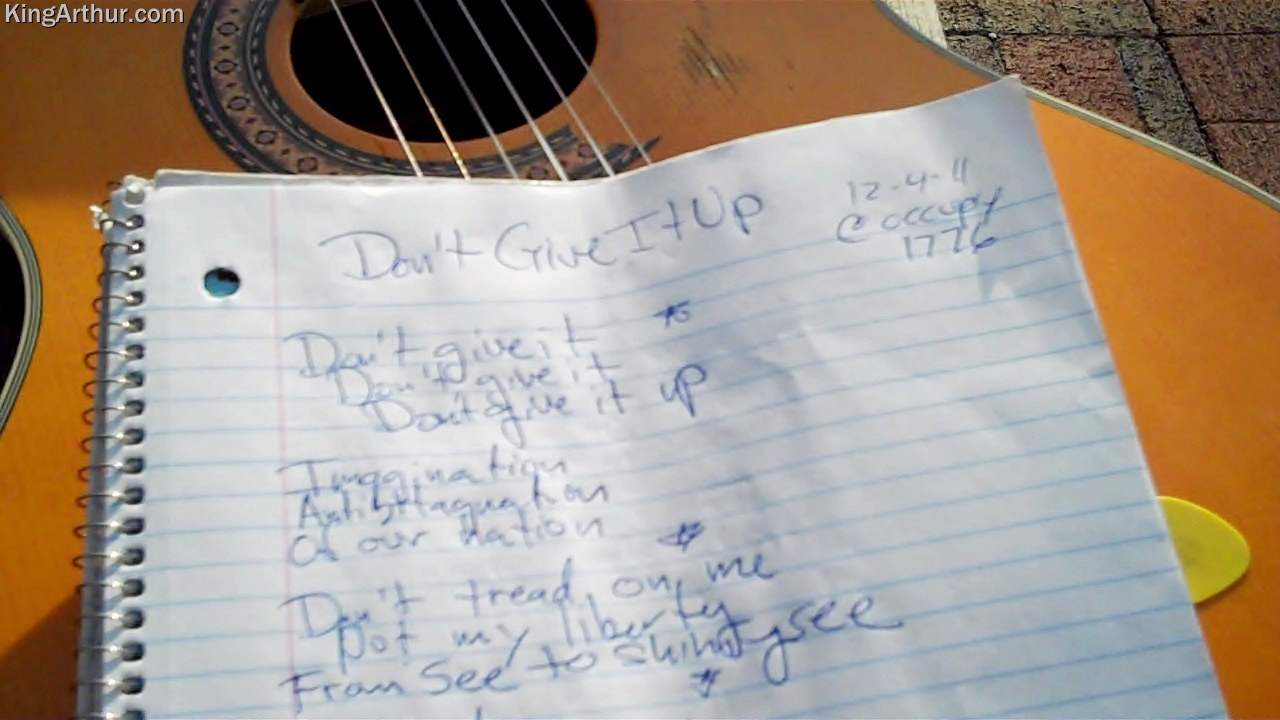 KingArthur.com
Don't Give It Up
12-4-11
@ occupy
1776
Don't give it
Don't give it
Don't give it up
Imagination
Of our Nation
Don't tread on me
Not my liberty
From See to shining see